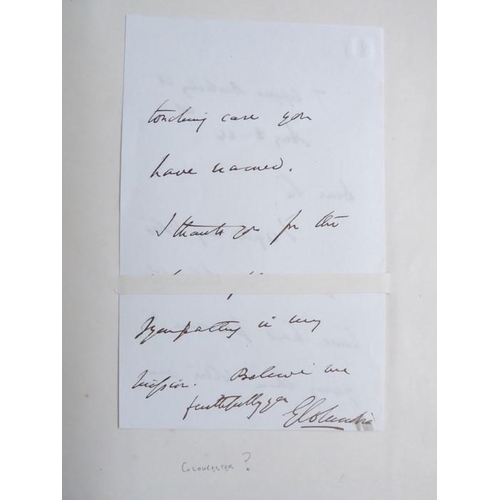 touching case you
have named.
I thank you for the
sympathy in my
mission. Believe me
faithfully yrs
G Columbia
Gloucester?